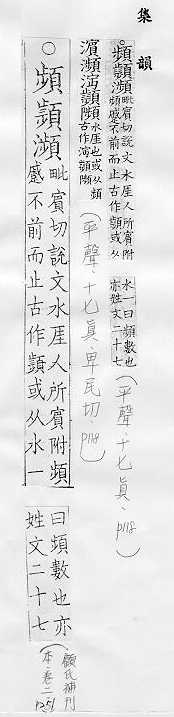 集韻
○頻顰瀕毗賓切說文水厓人所賓附
頻蹙不前而止古作顰或从
水一曰頻數也
亦姓文二十七
(平聲.十七真.p118
濱瀕
水厓也或从頻
(平聲.十七真.卑民切.p118)
○頻顰瀕毗賓切說文水厓人所賓附頻
蹙不前而止古作顰或从水一
曰頻數也亦
姓文二十七
(顧氏補刊
本.卷二